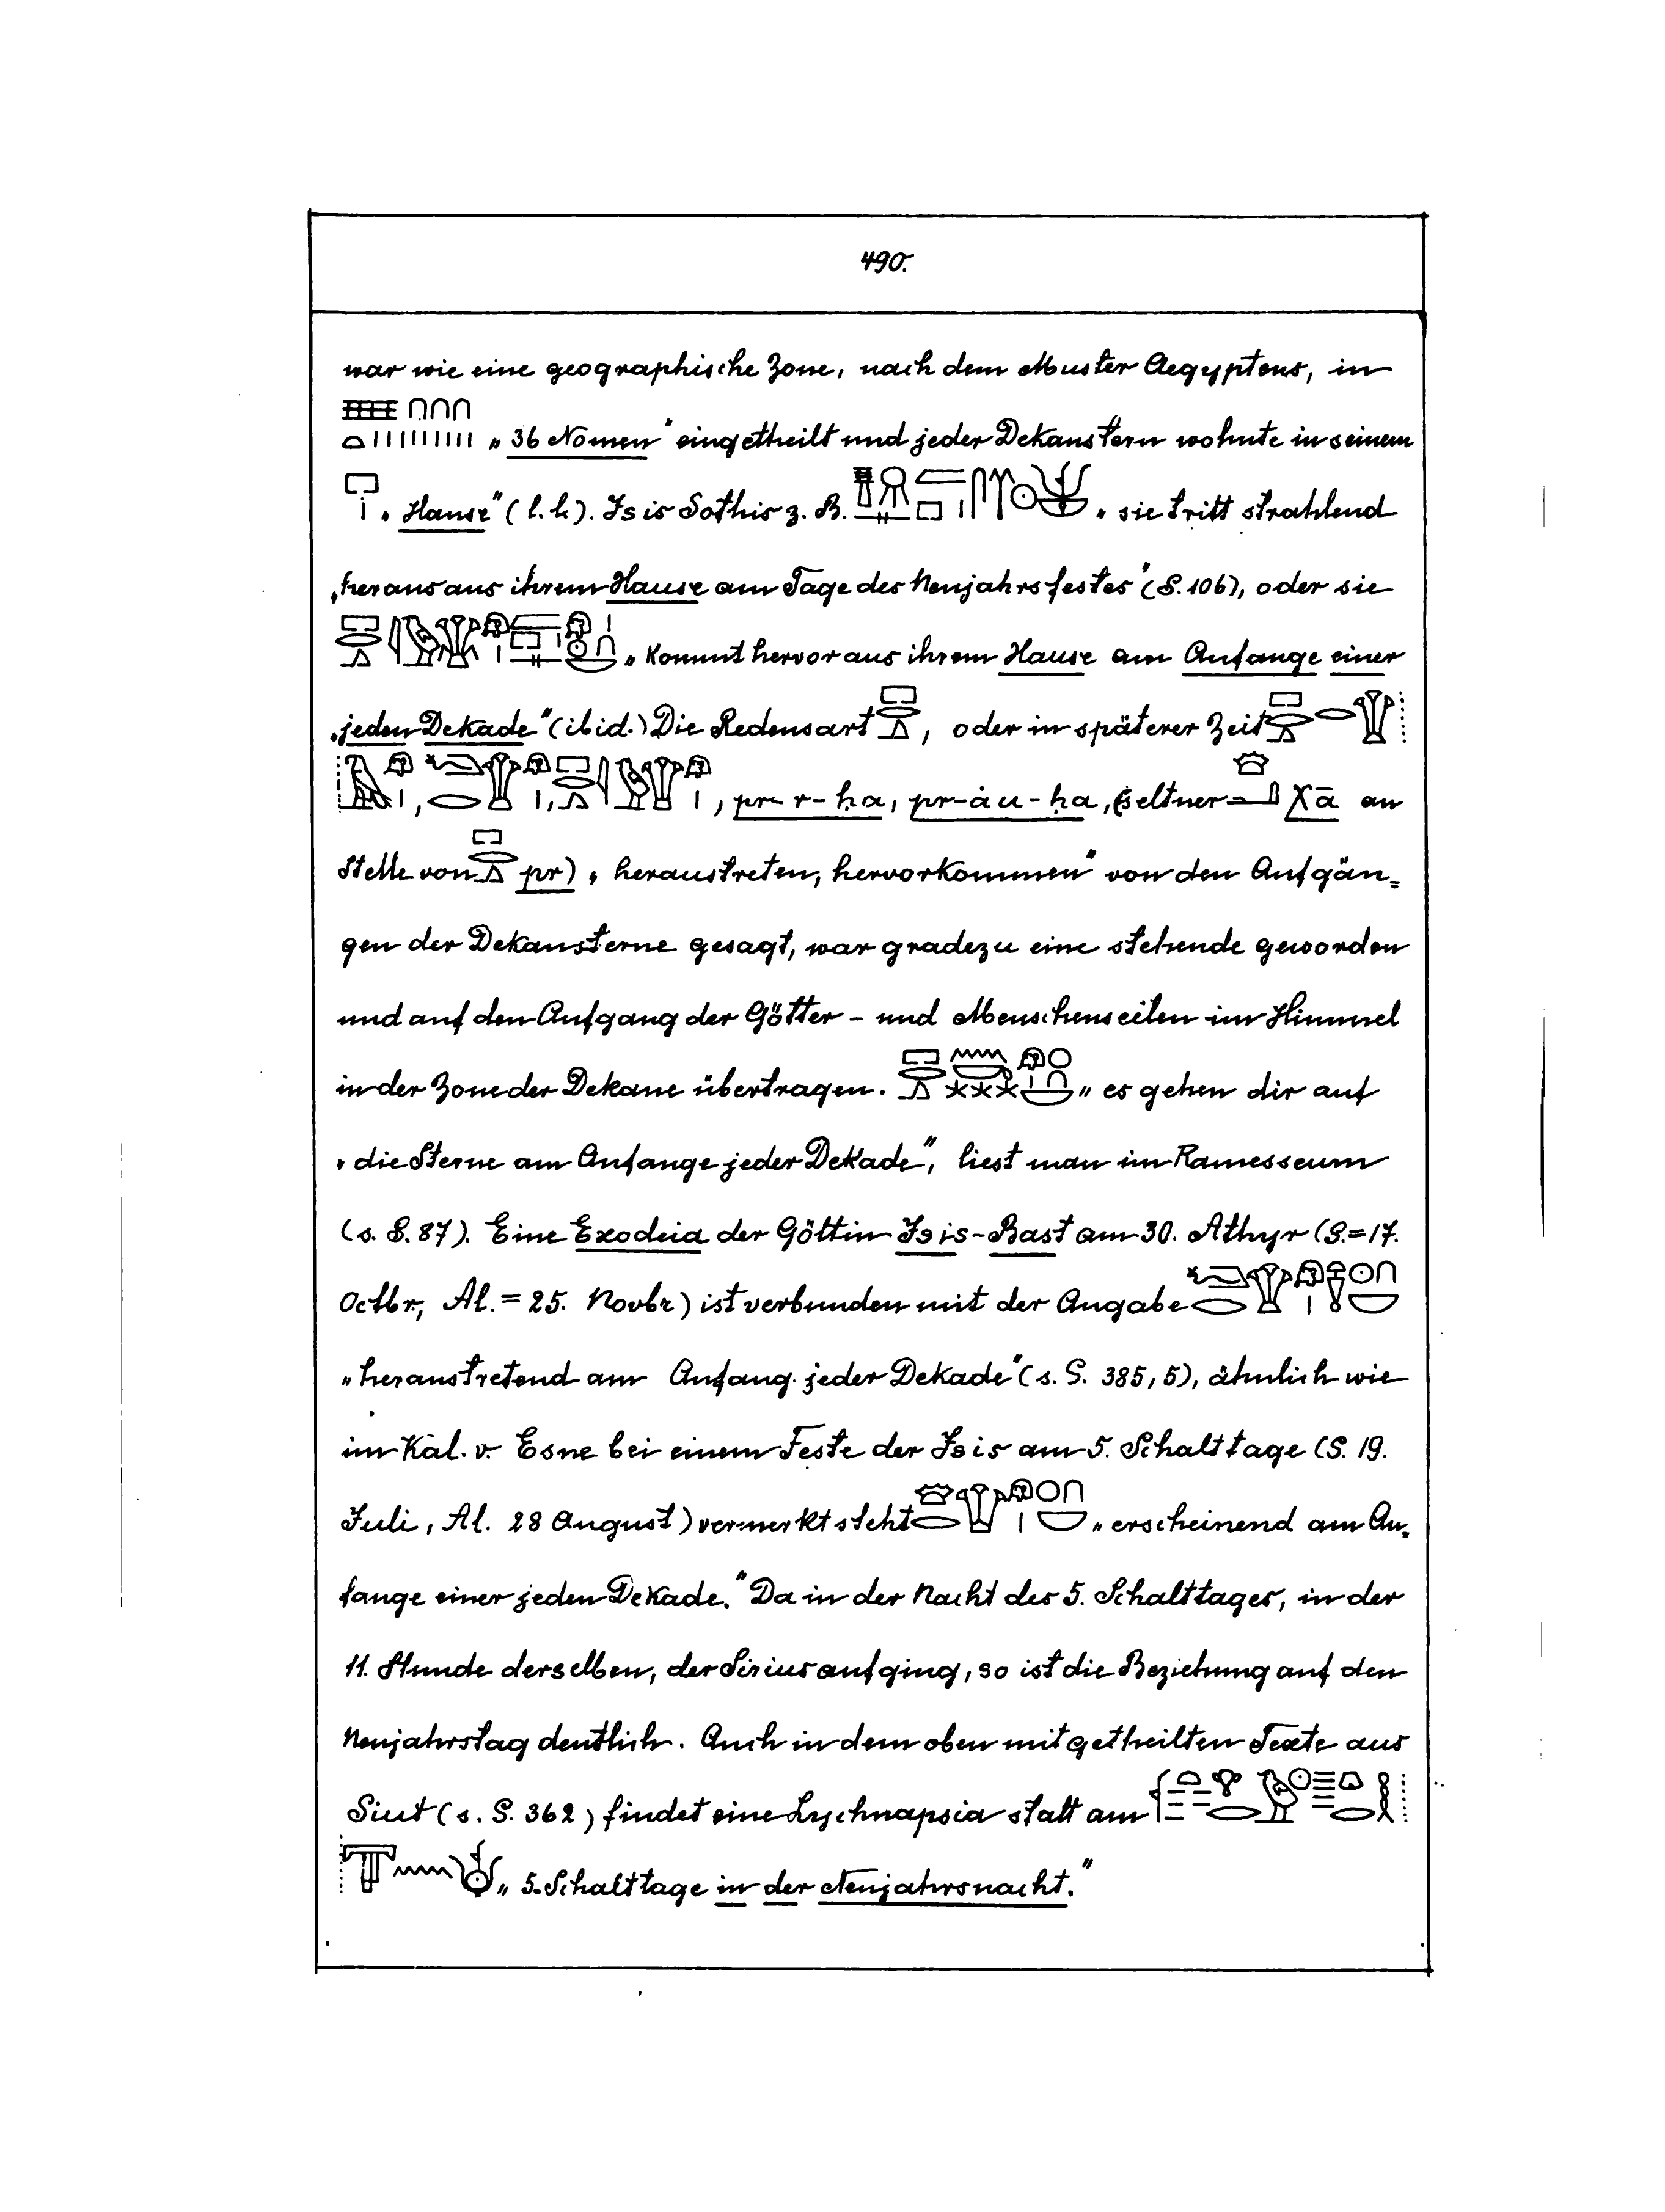 490.
war wie eine geographische Zone, nach dem Muster Aegyptens, in
„36 Nomen“ eingetheilt und jeder Dekanstern wohnte in seinem
„Hause“ (l. l.). Isis Sothis z. B. „sie tritt strahlend
„heraus aus ihrem Hause am Tage des Neujahrsfestes“ (S. 106), oder sie
„kommt hervor aus ihrem Hause am Anfange einer
„jeden Dekade“ (ibid.) Die Redensart , oder in späterer Zeit
, , , pr-r-ḥa, pr-àu-ḥa, (seltner χā an
Stelle von pr) „heraustreten, hervorkommen“ von den Aufgän=
gen der Dekansterne gesagt, war gradezu eine stehende geworden
und auf den Aufgang der Götter- und Menschenseelen im Himmel
in der Zone der Dekane übertragen. „es gehen dir auf
„die Sterne am Anfange jeder Dekade“, liest man im Ramesseum
(s. S. 87). Eine Exodeia der Göttin Isis-Bast am 30. Athyr (S.=17.
Octbr, Al. = 25. Novbr) ist verbunden mit der Angabe
„heraustretend am Anfang jeder Dekade“ (s. S. 385, 5), ähnlich wie
im Kal. v. Esne bei einem Feste der Isis am 5. Schalttage (S. 19.
Juli, Al. 28 August) vermerkt steht „erscheinend am An=
fange einer jeden Dekade.“ Da in der Nacht des 5. Schalttages, in der
11. Stunde derselben, der Sirius aufging, so ist die Beziehung auf den
Neujahrstag deutlich. Auch in dem oben mitgetheilten Texte aus
Siut (s. S. 362) findet eine Lychnapsia statt am
„5. Schalttage in der Neujahrsnacht.“